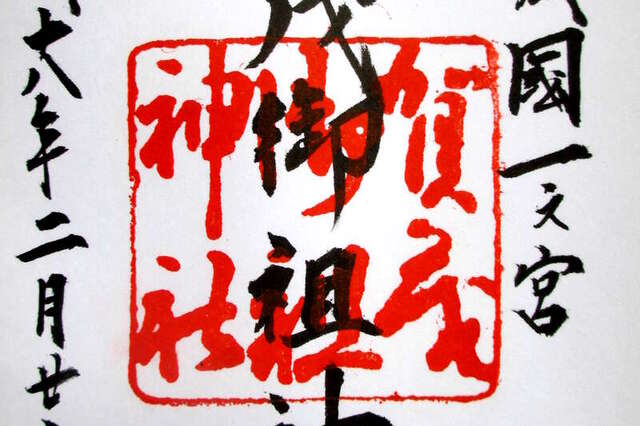 國一之宮
茂御祖神
賀茂
御祖
神社
十八年二月廿